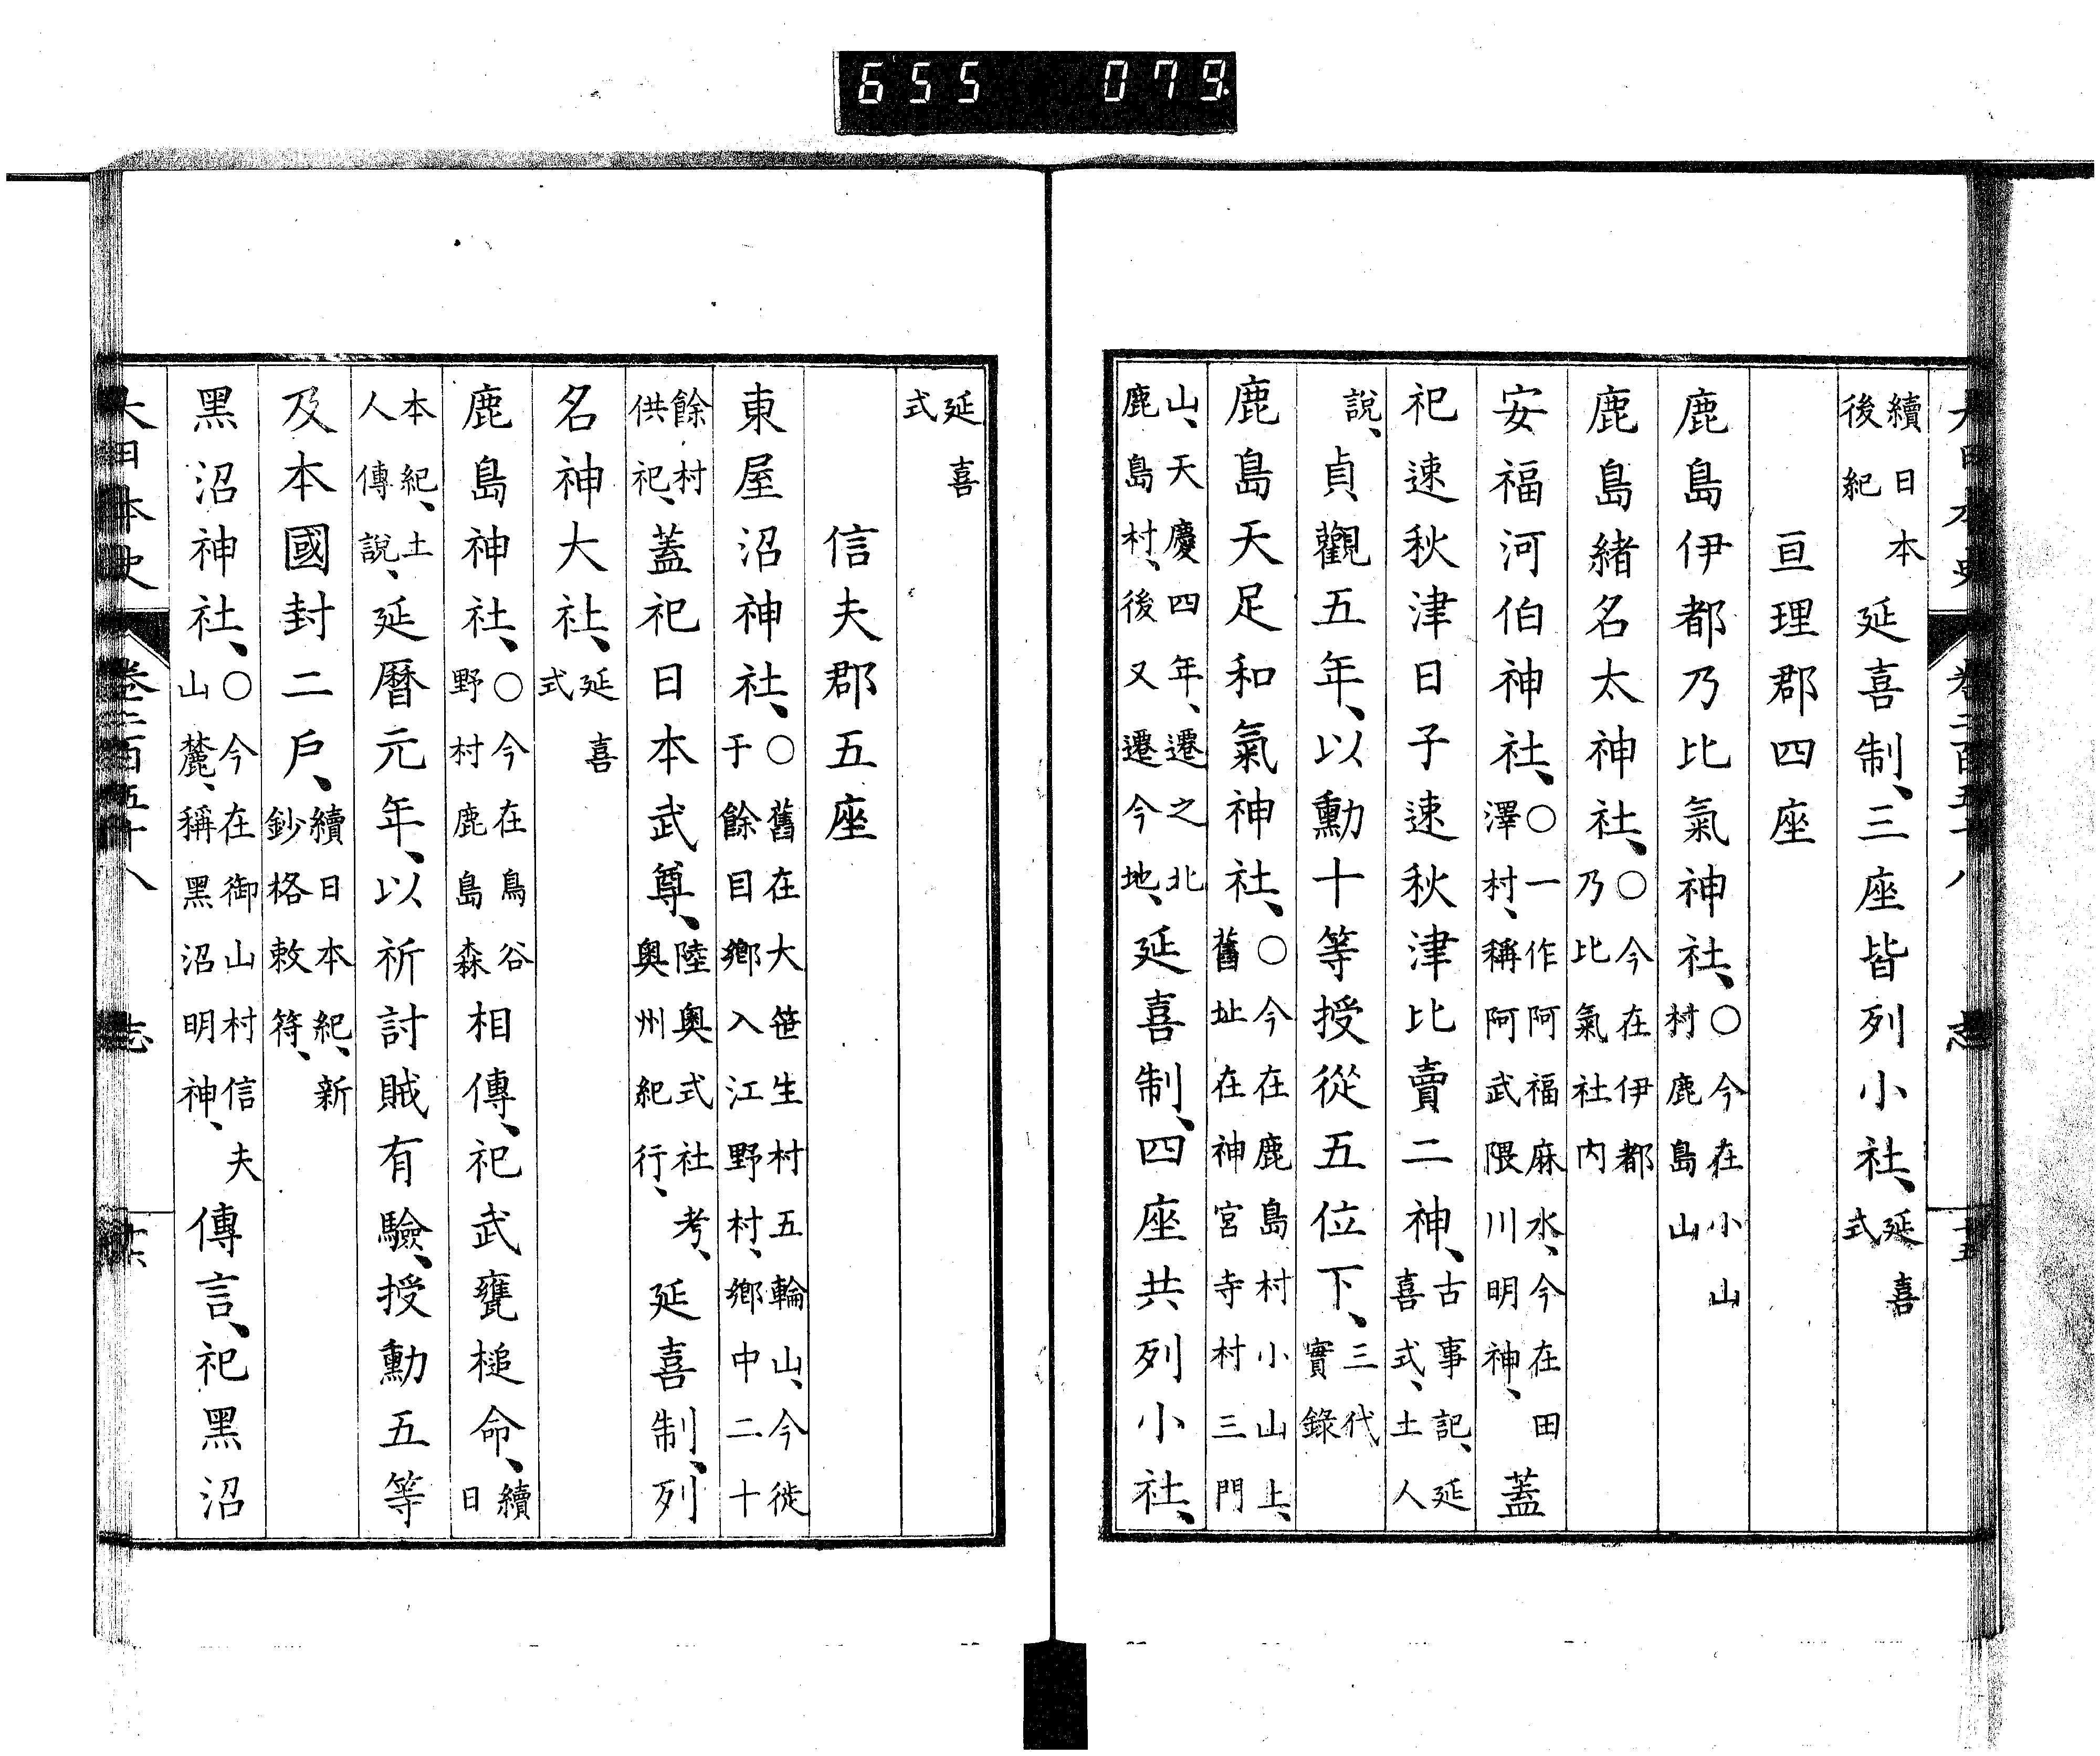 655 079
大日本史 卷二百五十八 志 十五
續日本後紀 延喜制、三座皆列小社、延喜式
亘理郡四座
鹿島伊都乃比氣神社、〇今在小山村鹿島山
鹿島緒名太神社、〇今在伊都乃比氣社内
安福河伯神社、〇一作阿福麻水、今在田澤村、稱阿武隈川明神、蓋
祀速秋津日子速秋津比賣二神、古事記、延喜式、土人
說、貞觀五年、以勳十等授從五位下、三代實錄
鹿島天足和氣神社、〇今在鹿島村小山上、舊址在神宮寺村三門
山、天慶四年、遷之北鹿島村、後又遷今地、延喜制、四座共列小社、
延喜式
信夫郡五座
東屋沼神社、〇舊在大笹生村五輪山、今徙于餘目鄉入江野村、鄉中二十
餘村供祀、蓋祀日本武尊、陸奧式社考、奧州紀行、延喜制、列
名神大社、延喜式
鹿島神社、〇今在鳥谷野村鹿島森相傳、祀武甕槌命、續日
本紀、土人傳說、延曆元年、以祈討賊有驗、授勳五等
及本國封二戶、續日本紀、新鈔格敕符、
黑沼神社、〇今在御山村信夫山麓、稱黑沼明神、傳言、祀黑沼
大日本史 卷二百五十八 志 十六